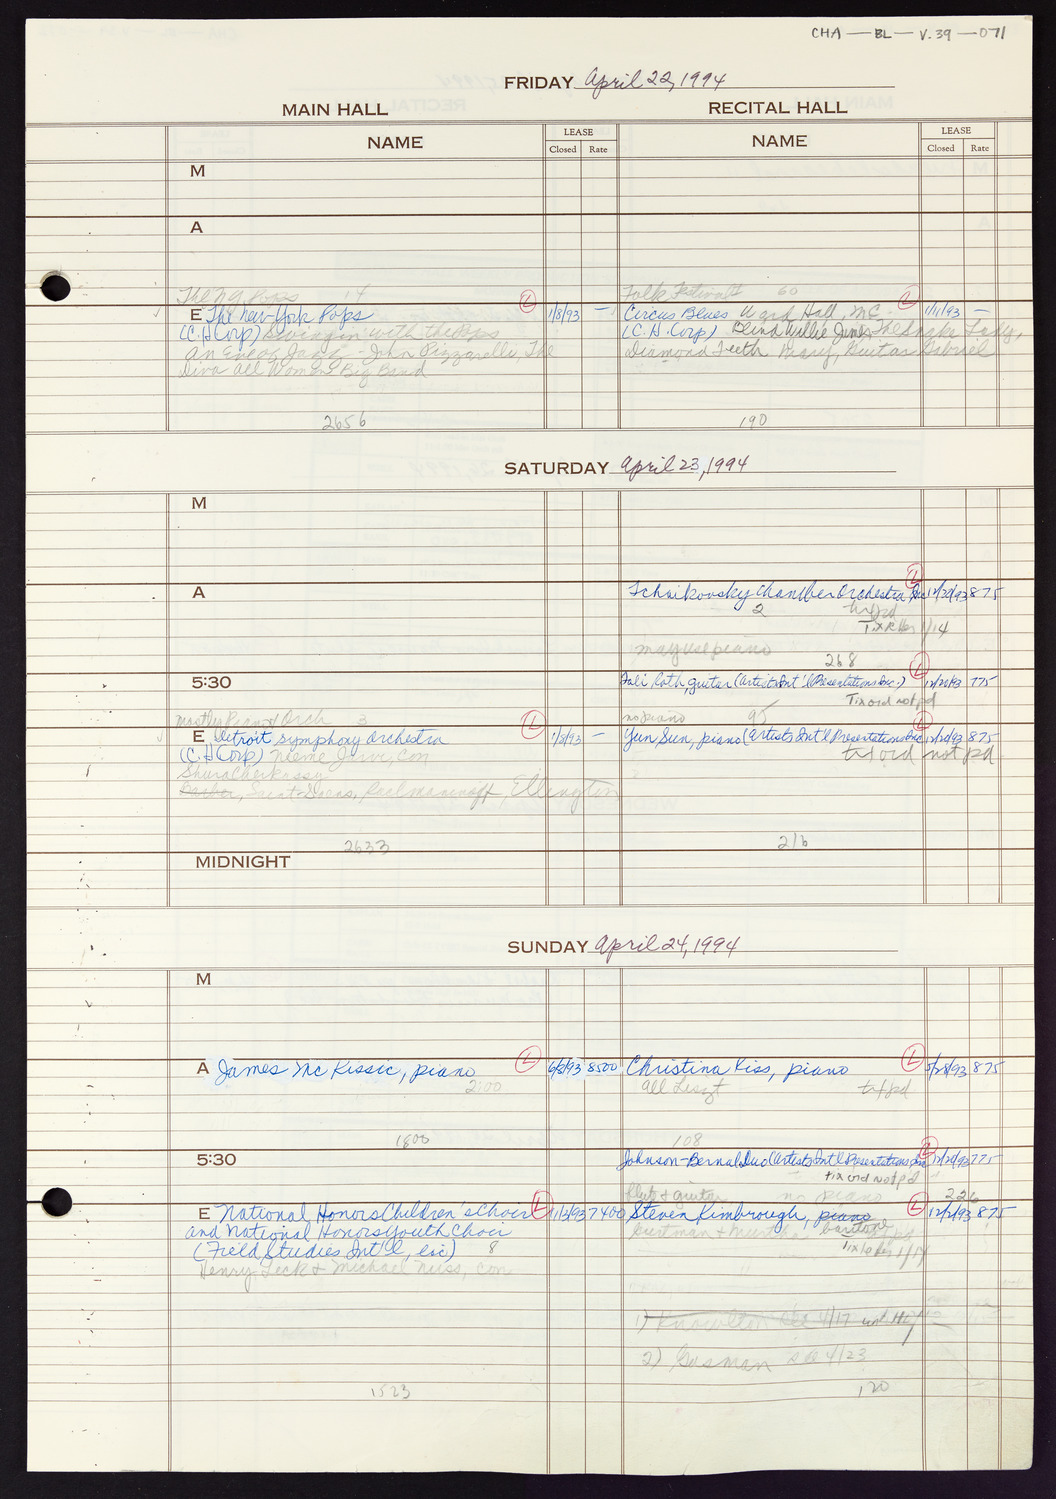 CHA — BL — V.39 — 071
FRIDAY April 22, 1994
MAIN HALL
RECITAL HALL
NAME
LEASE
Closed Rate
NAME
LEASE
Closed Rate
M
A
The NY Pops 14
E The New York Pops
L
1/8/93 —
(C.H Corp) Swingin' with the Pops
John Pizzarelli, The
Diva All Woman Big Band
2656
Folk Festival 60
Circus Blues Ward Hall, MC
L
1/11/93 —
(C.H. Corp) Blind Willie James, The Snake Lady,
Diamond Teeth Mary, Guitar Gabriel
190
SATURDAY April 23, 1994
M
A
Tchaikovsky Chamber Orchestra Inc
L
12/20/93 875
2
tix ord
1/14
may use piano
268
5:30
guitar (Artists Int'l Presentations Inc.)
L
12/20/93 775
Tix ord not pd
no piano 95
Orch 3
E Detroit Symphony Orchestra
L
1/8/93 —
(C.H Corp) Neeme Jarvi, Con
Shura Cherkassy
Barber, Rachmaninoff, Ellington
2633
Yun Sun, piano (Artists Int'l Presentations Inc
L
12/20/93 875
tix ord not pd
216
MIDNIGHT
SUNDAY April 24, 1994
M
A James McKissic, piano
L
6/8/93 8500
2:00
1800
Christina Kiss, piano
L
5/28/93 875
All Liszt
tix pd
108
5:30
Johnson-Bernal Duo (Artists Int'l Presentations Inc
L
12/20/93 775
tix ord not pd
flute & guitar no piano 226
E National Honors Children's Choir
L
11/2/93 7400
and National Honors Youth Choir
(Field Studies Int'l, Inc) 8
Henry Leck & Michael Nuss, con
1523
Steven Kimbrough, piano
L
12/2/93 875
baritone
1) Knowlton 4/17
2) Gosman 4/23
120